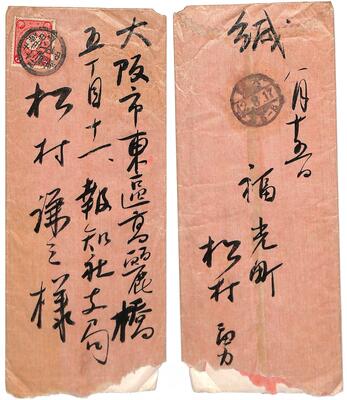 大阪市東區高麗橋
五丁目十一、報知社支局
松村謙三様
緘
八月十五日
福光町
松村